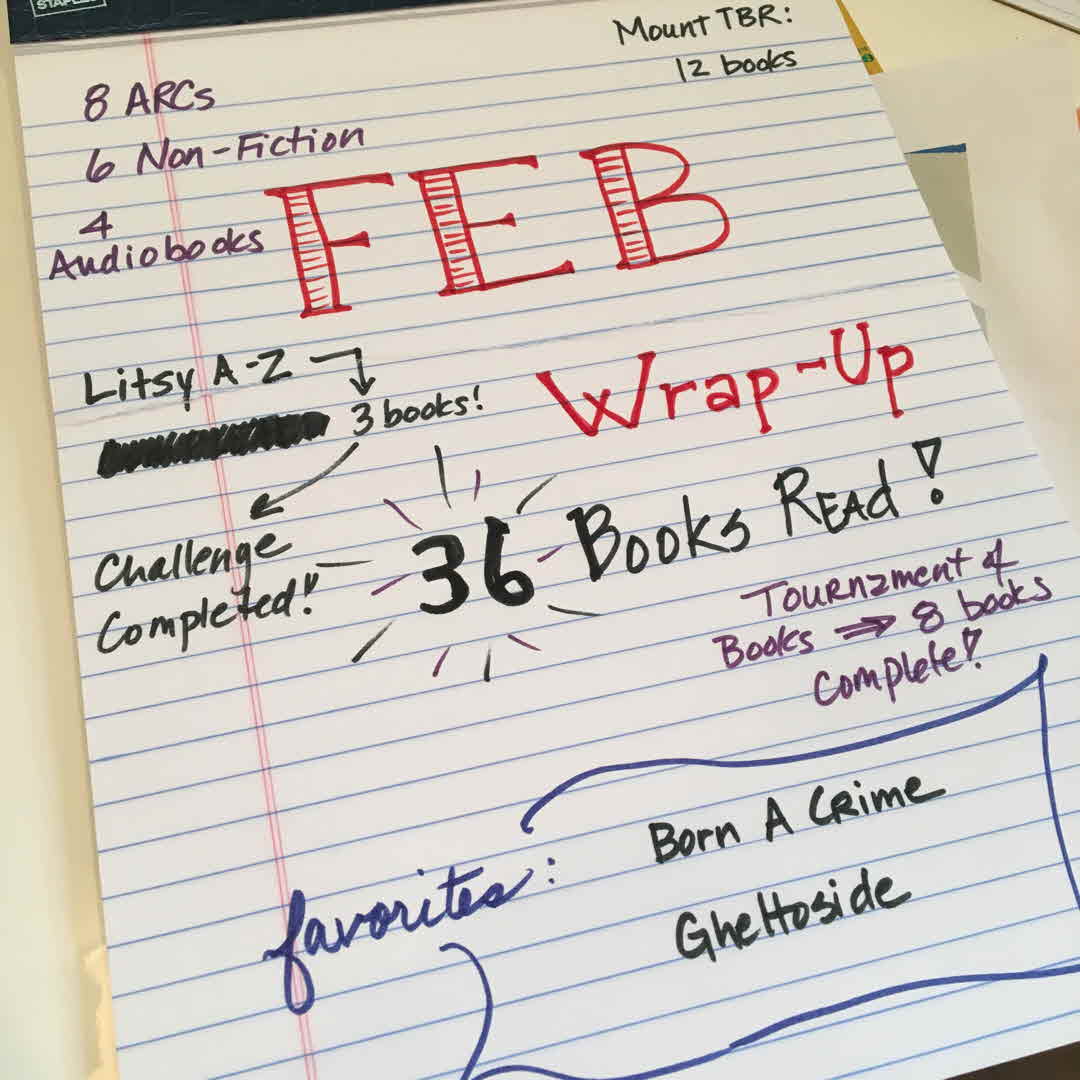 STAPLES
Mount TBR:
12 books
8 ARCs
6 Non-Fiction
4
Audiobooks
FEB
Wrap-Up
Litsy A-Z
3 books!
Challenge
Completed!
36 Books Read!
Tournament of
Books ⇒ 8 books
complete!
favorites:
Born A Crime
Ghettoside